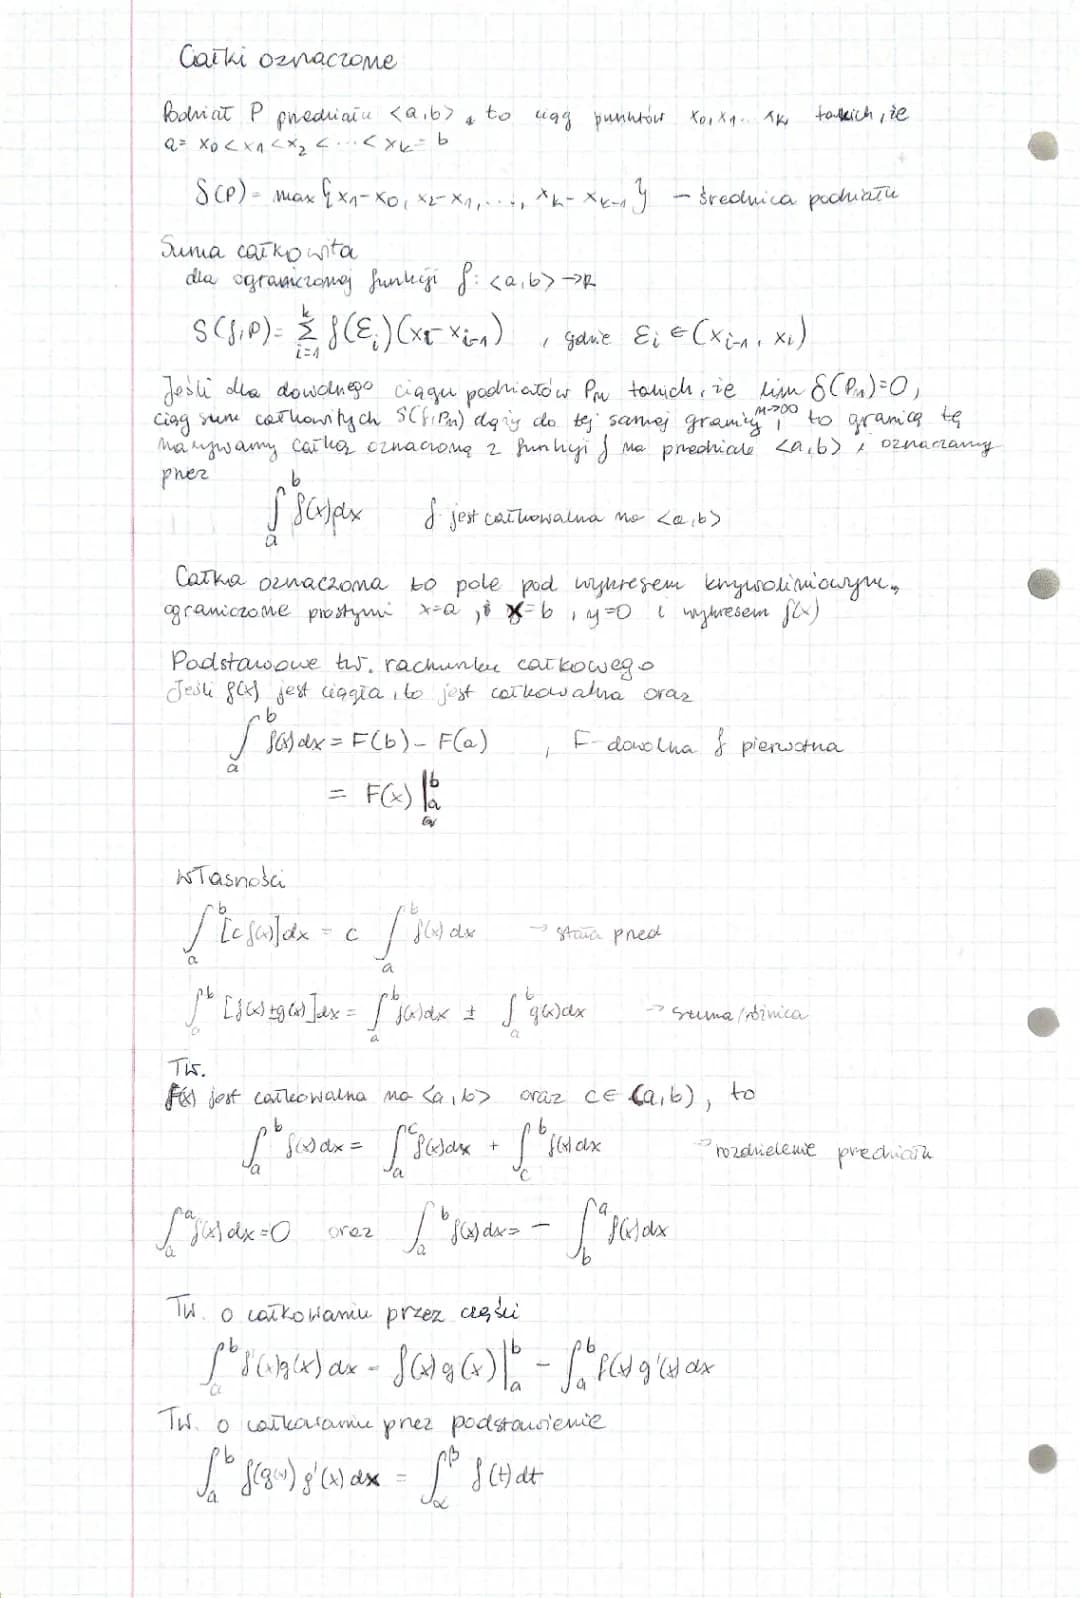 Całki oznaczone
Podział P przedziału <a,b>, to ciąg punktów x₀, x₁... xₖ, takich, że
a = x₀ < x₁ < x₂ < ... < xₖ = b
δ(P) = max {x₁-x₀, x₂-x₁, ..., xₖ-xₖ₋₁} - średnica podziału
Suma całkowita
dla ograniczonej funkcji f: <a,b> → R
S(f,P) = Σᵢ₌₁ᵏ f(Ɛᵢ)(xᵢ-xᵢ₋₁) , gdzie Ɛᵢ ∈ (xᵢ₋₁, xᵢ)
Jeśli dla dowolnego ciągu podziałów Pₙ takich, że lim n→∞ δ(Pₙ)=0,
ciąg sum całkowitych S(f,Pₙ) dąży do tej samej granicy, to granicę tę
nazywamy całką oznaczoną z funkcji f na przedziale <a,b>, oznaczamy
przez
∫ₐᵇ f(x)dx f jest całkowalna na <a,b>
Całka oznaczona to pole pod wykresem krzywoliniowym,
ograniczone prostymi x=a, x=b, y=0 i wykresem f(x)
Podstawowe tw. rachunku całkowego
Jeśli f(x) jest ciągła, to jest całkowalna oraz
∫ₐᵇ f(x)dx = F(b) - F(a) , F-dowolna f pierwotna
= F(x) |ₐᵇ
Własności
∫ₐᵇ [cf(x)]dx = c ∫ₐᵇ f(x)dx → stała przed
∫ₐᵇ [f(x)±g(x)]dx = ∫ₐᵇ f(x)dx ± ∫ₐᵇ g(x)dx → suma/różnica
Tw.
f(x) jest całkowalna na <a,b> oraz c∈(a,b), to
∫ₐᵇ f(x)dx = ∫ₐᶜ f(x)dx + ∫꜀ᵇ f(x)dx → rozdzielenie przedziału
∫ₐᵃ f(x)dx = 0 oraz ∫ₐᵇ f(x)dx = - ∫_bᵃ f(x)dx
Tw. o całkowaniu przez części
∫ₐᵇ f'(x)g(x)dx = f(x)g(x)|ₐᵇ - ∫ₐᵇ f(x)g'(x)dx
Tw. o całkowaniu przez podstawienie
∫ₐᵇ f(g(x))g'(x)dx = ∫_α^β f(t)dt